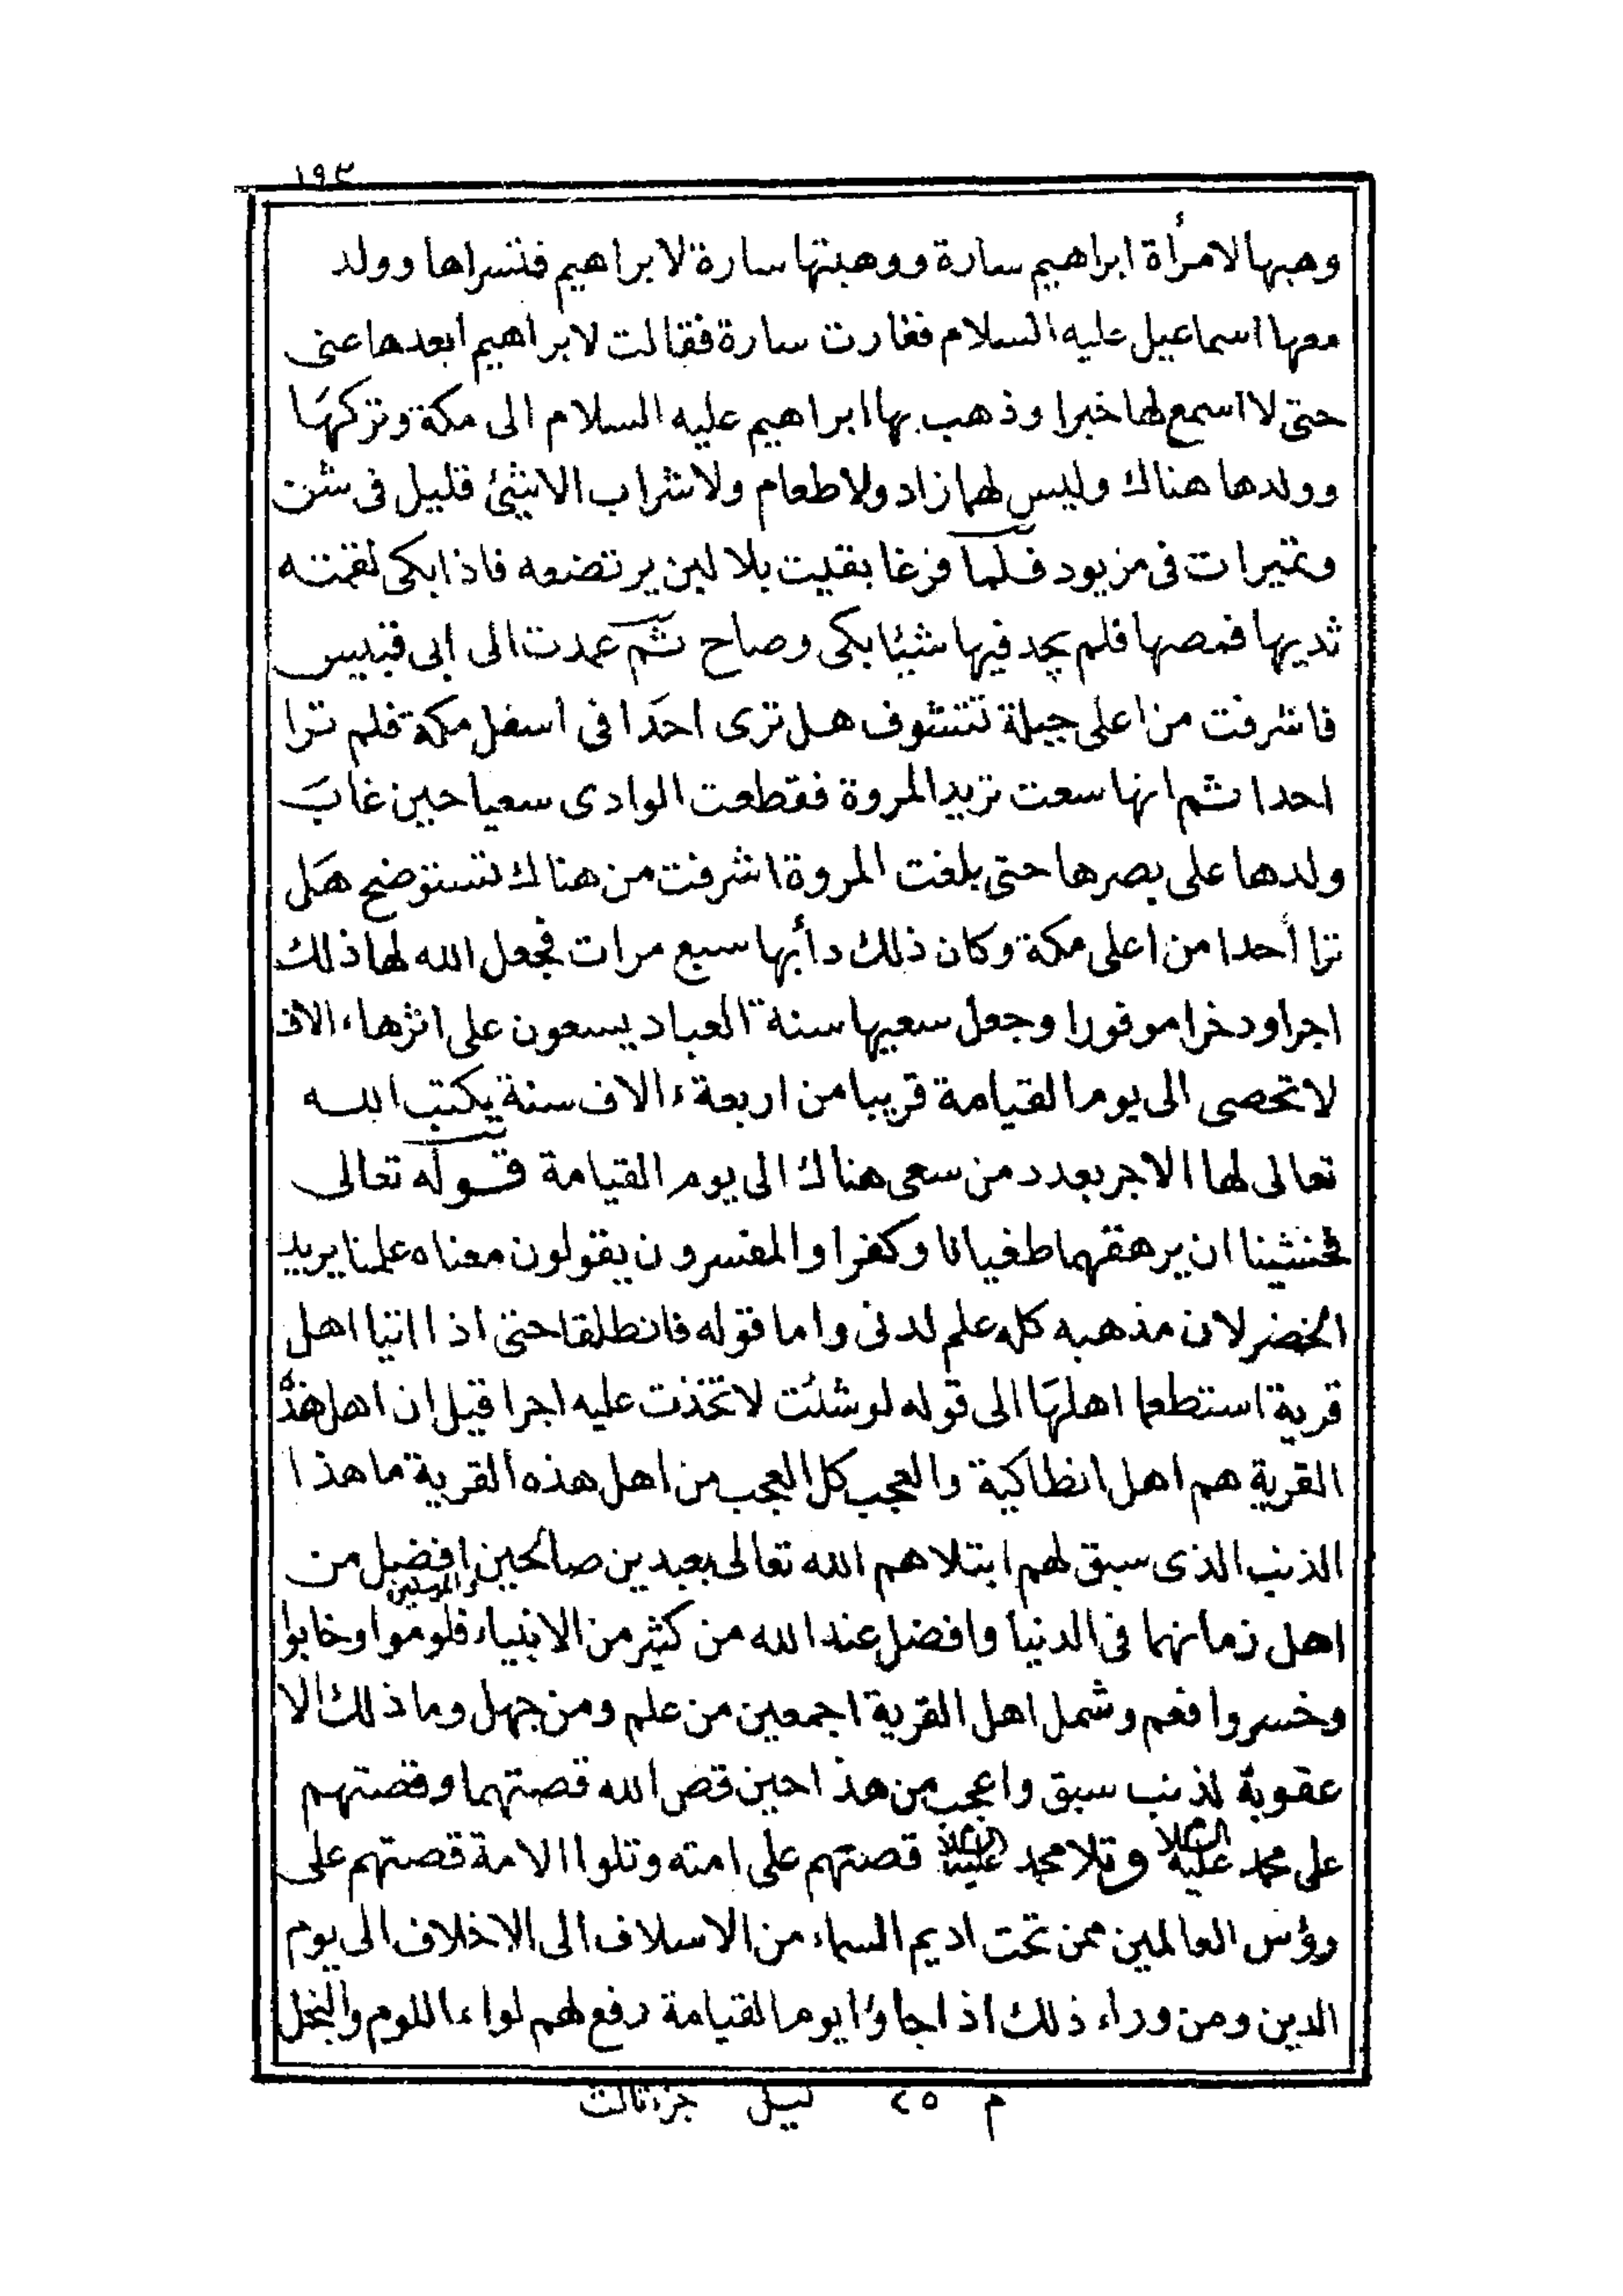 ١٩٣
وهبها لامرأة ابراهيم سارة ووهبتها سارة لابراهيم فتسراها وولد
معها اسماعيل عليه السلام فغارت سارة فقالت لابراهيم ابعدها عنى
حتى لا اسمع لها خبرا وذهب بها ابراهيم عليه السلام الى مكة وتركها
وولدها هناك وليس لهما زاد ولا طعام ولا شراب الا شئ قليل فى شن
وتميرات فى مزيود فلما فرغا بقيت بلا لبن يرتضعه فاذا بكى لقمته
ثديها فمصها فلم يجد فيها شيئا بكى وصاح ثم عمدت الى ابى قبيس
فاشرفت من اعلى جبلة تتشوف هل ترى احدا فى اسفل مكة فلم ترا
احدا ثم انها سعت تريد المروة فقطعت الوادى سعيا حين غاب
ولدها على بصرها حتى بلغت المروة اشرفت من هناك تستوضح هل
ترا أحدا من اعلى مكة وكان ذلك دأبها سبع مرات فجعل الله لها ذلك
اجرا وذخرا موفورا وجعل سعيها سنة العباد يسعون على اثرها ءالاف
لا تحصى الى يوم القيامة قريبا من اربعة ءالاف سنة يكتب الله
تعالى لها الاجر بعدد من سعى هناك الى يوم القيامة قوله تعالى
فخشينا ان يرهقهما طغيانا وكفرا والمفسرون يقولون معناه علمنا يريد
الخضر لان مذهبه كله علم لدنى واما قوله فانطلقا حتى اذا اتيا اهل
قرية استطعما اهلها الى قوله لو شئت لاتخذت عليه اجرا قيل ان اهل هذه
القرية هم اهل انطاكية والعجب كل العجب من اهل هذه القرية ما هذا
الذنب الذى سبق لهم ابتلاهم الله تعالى بعبدين صالحين افضل من
اهل زمانهما فى الدنيا وافضل عند الله من كثير من الانبياء والمرسلين فلوموا وخابوا
وخسروا فعم وشمل اهل القرية اجمعين من علم ومن جهل وما ذلك الا
عقوبة لذنب سبق واعجب من هذا حين قص الله قصتهما وقصتهم
على محمد عليه السلام وتلا محمد عليه السلام قصتهم على امته وتلوا الامة قصتهم على
رؤس العالمين ممن تحت اديم السماء من الاسلاف الى الاخلاف الى يوم
الدين ومن وراء ذلك اذا جاؤا يوم القيامة رفع لهم لواء اللوم والبخل
م ٢٥ نيل جزء ثالث